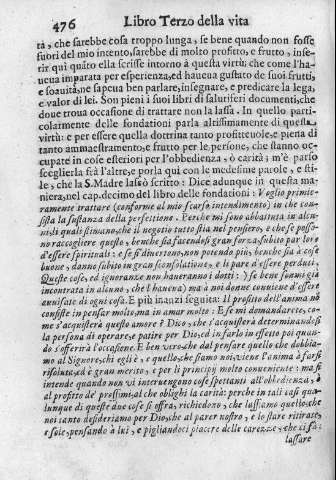 476 Libro Terzo della vita
ta, che sarebbe cosa troppo lunga, se bene quando non fosse
fuori del mio intento, sarebbe di molto profitto, e frutto, inse-
rir quì questo ella scrisse intorno à questa virtù; che come l'ha-
ueua imparata per esperienza, ed haueua gustato de suoi frutti,
e soauità, ne sapeua ben parlare, insegnare, e predicare la lega,
e valor di lei. Son pieni i suoi libri di salutiferi documenti, che
doue troua occasione di trattare non la lassa. In quello parti-
colarmente delle fondationi parla altissimamente di questa
virtù: e per essere quella dottrina tanto profitteuole, e piena di
tanto ammaestramento, e frutto per le persone, che stanno oc-
cupate in cose esteriori per l'obbedienza, ò carità; m'è parso
sceglierla frà l'altre, e porla quì con le medesime parole, e sti-
le, che la S. Madre lasciò scritto: Dice adunque in questa ma-
niera, nel cap. decimo del libro delle fondationi: Voglio primie-
ramente trattare (conforme al mio scarso intendimento) in che con-
sista la sustanza della perfettione. Perche mi sono abbattuta in alcu-
ni, ai quali stimano, che il negotio tutto stia nel pensiero, e che se posso-
no raccogliere questo, benche sia facendosi gran forza, subito par loro
d'essere spirituali: e se si diuertono, non potendo più, benche sia à cose
buone, danno subito in gran sconsolatione, e li pare d'essere perduti.
Queste cose, ed ignoranze non haueranno i dotti: (se bene sonmi già
incontrata in alcuno, che l'haueua) ma à noi donne conuiene d'essere
auuisate di ogni cosa. E più inanzi seguita: Il profitto dell'anima nõ
consiste in pensar molto, ma in amar molto: E se mi domandarete, co-
me s'acquisterà questo amore? Dico, che s'acquisterà determinandosi
la persona di operare, e patire per Dio, ed in farlo in effetto poi quan-
do s'offerirà l'occasione. E ben vero, che dal pensare quello che dobbia-
mo al Signore, chi egli è, e quello, che siamo noi, viene l'anima à farsi
risoluta, ed è gran merito, e per li principij molto conueniente: ma s'
intende quando non vi interuengono cose spettanti all'obbedienza, ò
al profitto de' prossimi, al che oblighi la carità: perche in tali casi qua-
lunque di queste due cose si offra, richiedono, che lassiamo quello, che
noi tanto desideriamo per Dio, che al parer nostro, è lo stare ritirate,
e sole, pensando à lui, e pigliandoci piacere delle carezze, che ci fà
lassare